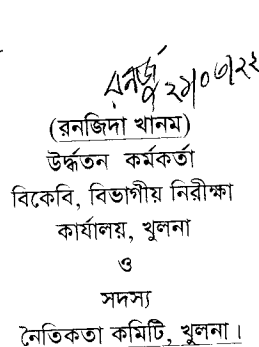 রনজু ২১/০৩/২২
(রনজিদা খানম)
উর্দ্ধতন কর্মকর্তা
বিকেবি, বিভাগীয় নিরীক্ষা
কার্যালয়, খুলনা
ও
সদস্য
নৈতিকতা কমিটি, খুলনা ।